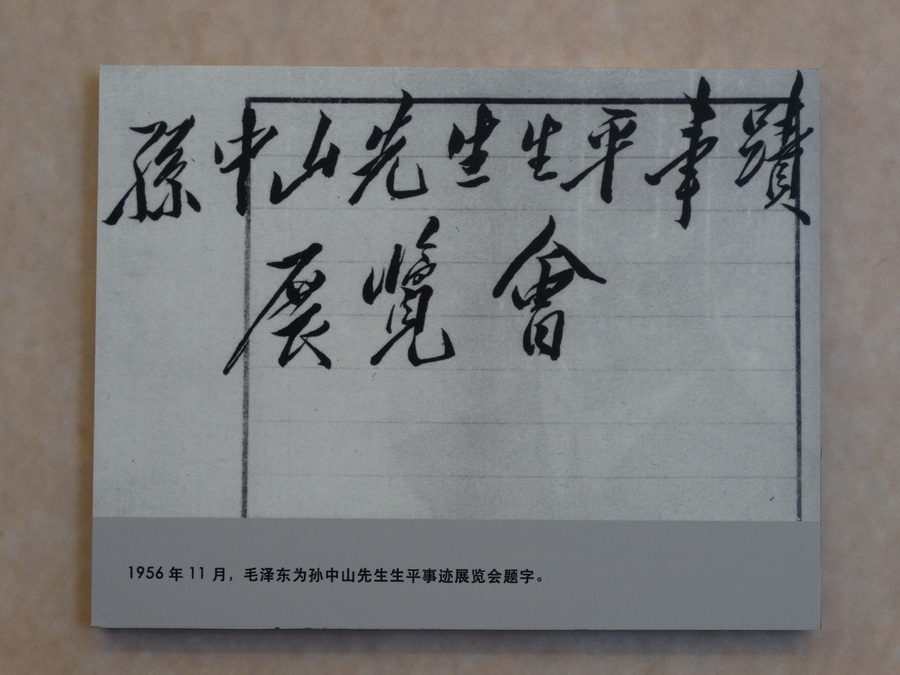 孫中山先生生平事蹟
展覽會
1956年11月，毛泽东为孙中山先生生平事迹展览会题字。